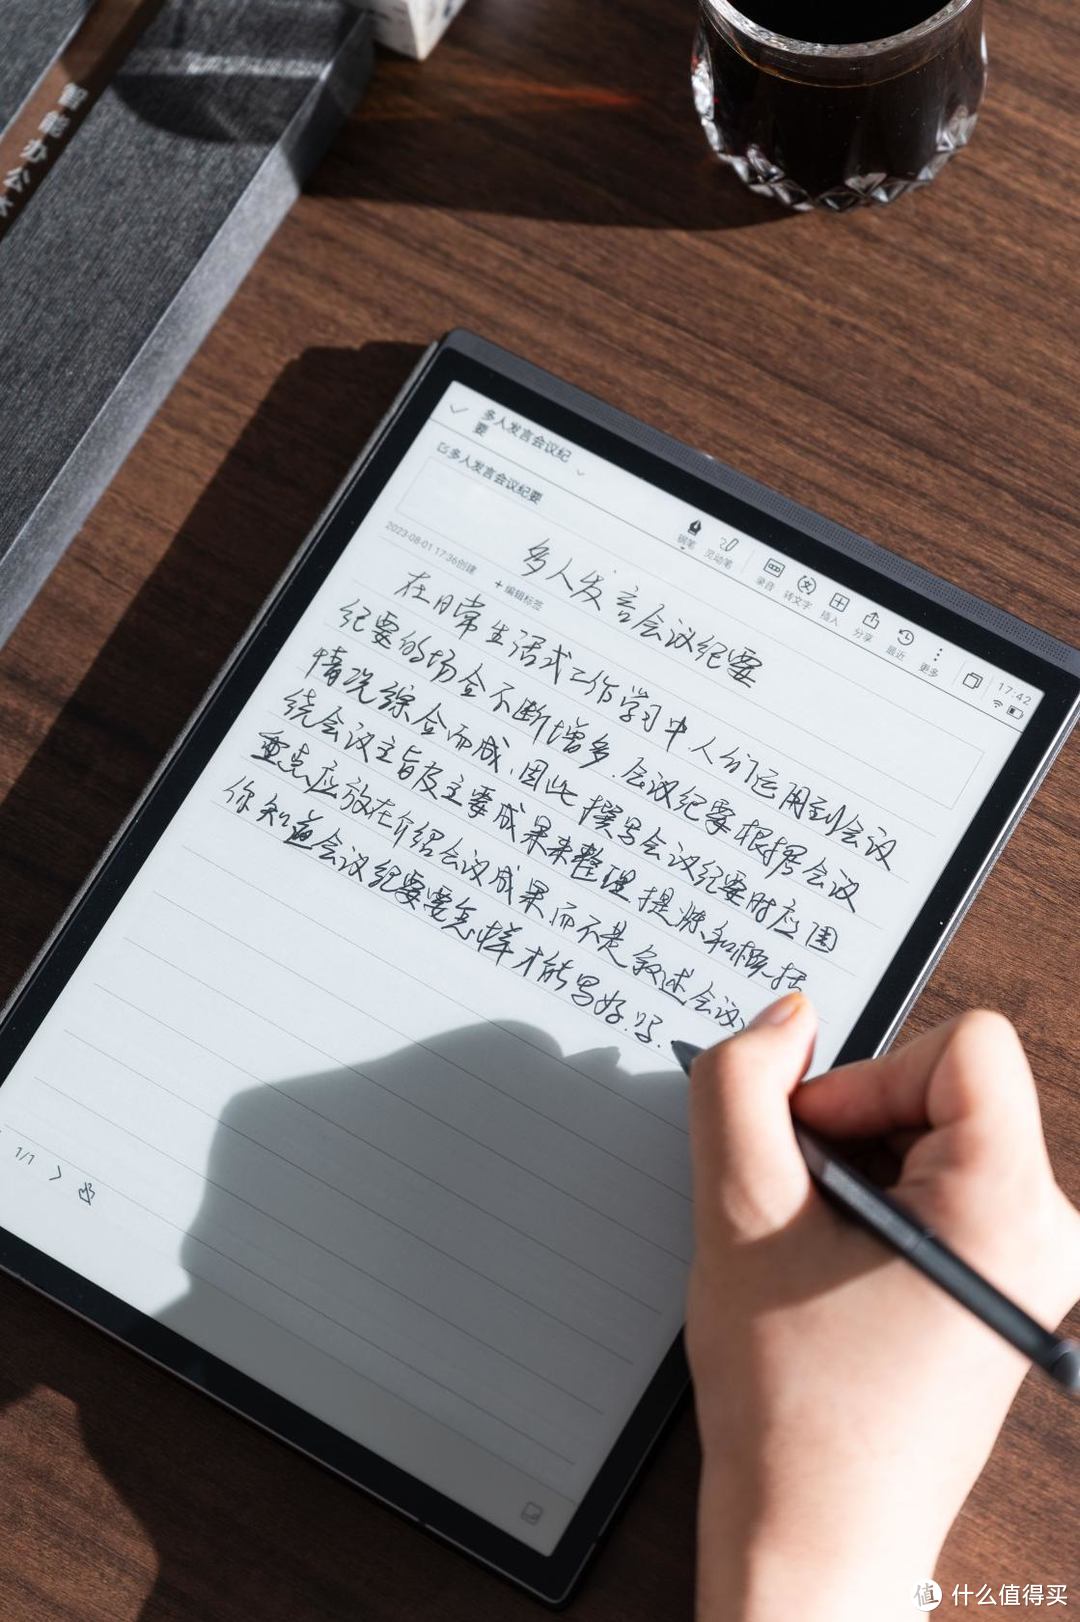 智能办公本
多人发言会议纪
要
多人发言会议纪要
钢笔
灵动笔
录音
转文字
插入
分享
最近
更多
17:42
2023-08-01 17:36创建
+ 编辑标签
多人发言会议纪要
在日常生活或工作学习中人们运用到会议
纪要的场合不断增多.会议纪要根据会议
情况综合而成,因此撰写会议纪要时应围
绕会议主旨及主要成果来整理提炼和概括
重点应放在介绍会议成果而不是叙述会议
你知道会议纪要要怎样才能写好.吗.
1/1
值 什么值得买